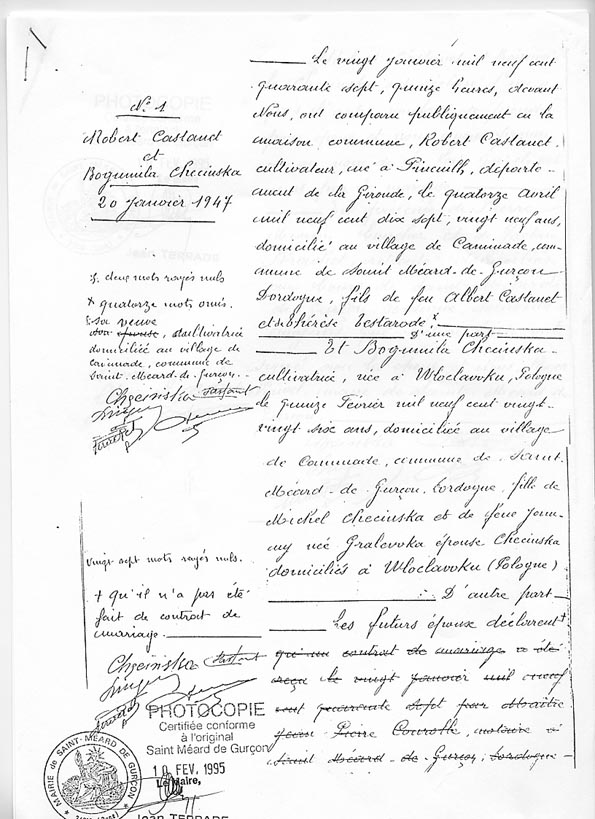 N° 1
Robert Castanet
et
Bogumila Checinska
20 Janvier 1947
deux mots rayés nuls
+ quatorze mots omis.
sa veuve
son épouse, cultivatrice
domiciliée au village de
Caminade, commune de
Saint-Méard-de-Gurçon.
Chęcinska Castanet
Vingt sept mots rayés nuls.
+ qu'il n'a pas été
fait de contrat de
mariage.
Chęcinska Castanet
Le vingt janvier mil neuf cent
quarante sept, quinze heures, devant
Nous, ont comparu publiquement en la
maison commune, Robert Castanet
cultivateur, né à Pineuilh, départe-
ment de la Gironde, le quatorze avril
mil neuf cent dix sept, vingt neuf ans,
domicilié au village de Caminade, com-
mune de Saint Méard-de-Gurçon
Dordogne, fils de feu Albert Castanet
et de Thérèse Testarode x
D'une part
Et Bogumila Checinska
cultivatrice, née à Wloclavoku, Pologne
le quinze Février mil neuf cent vingt-
vingt six ans, domiciliée au village
de Caminade, commune de Saint
Méard-de-Gurçon, Dordogne, fille de
Michel Checinska et de feue
née Gralevoka épouse Checinska
domiciliés à Wloclavoku (Pologne)
D'autre part
Les futurs époux déclarent +
qu'un contrat de mariage a été
reçu le vingt janvier mil neuf
cent quarante sept par Maître
Jean Pierre Courolle, notaire à
Saint Méard-de-Gurçon, Dordogne
PHOTOCOPIE
Certifiée conforme
à l'original
Saint Méard de Gurçon
10 FEV. 1995
Le Maire,
MAIRIE de SAINT-MÉARD DE GURÇON
Jean TERRADE